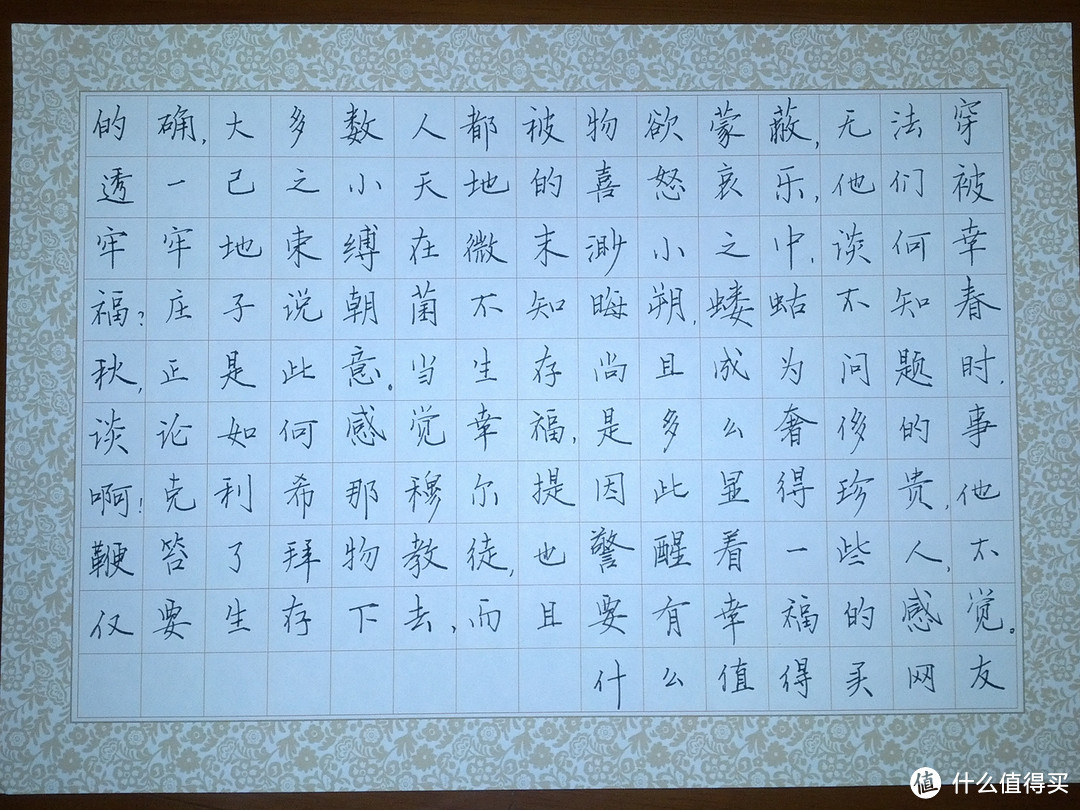 的确,大多数人都被物欲蒙蔽,无法穿
透一己之小天地的喜怒哀乐,他们被
牢牢地束缚在微末渺小之中,谈何幸
福?庄子说朝菌不知晦朔,蝼蛄不知春
秋,正是此意。当生存尚且成为问题时,
谈论如何感觉幸福,是多么奢侈的事
啊!克利希那穆尔提因此显得珍贵,他
鞭笞了拜物教徒,也警醒着一些人,不
仅要生存下去,而且要有幸福的感觉。
什么值得买网友
值 什么值得买